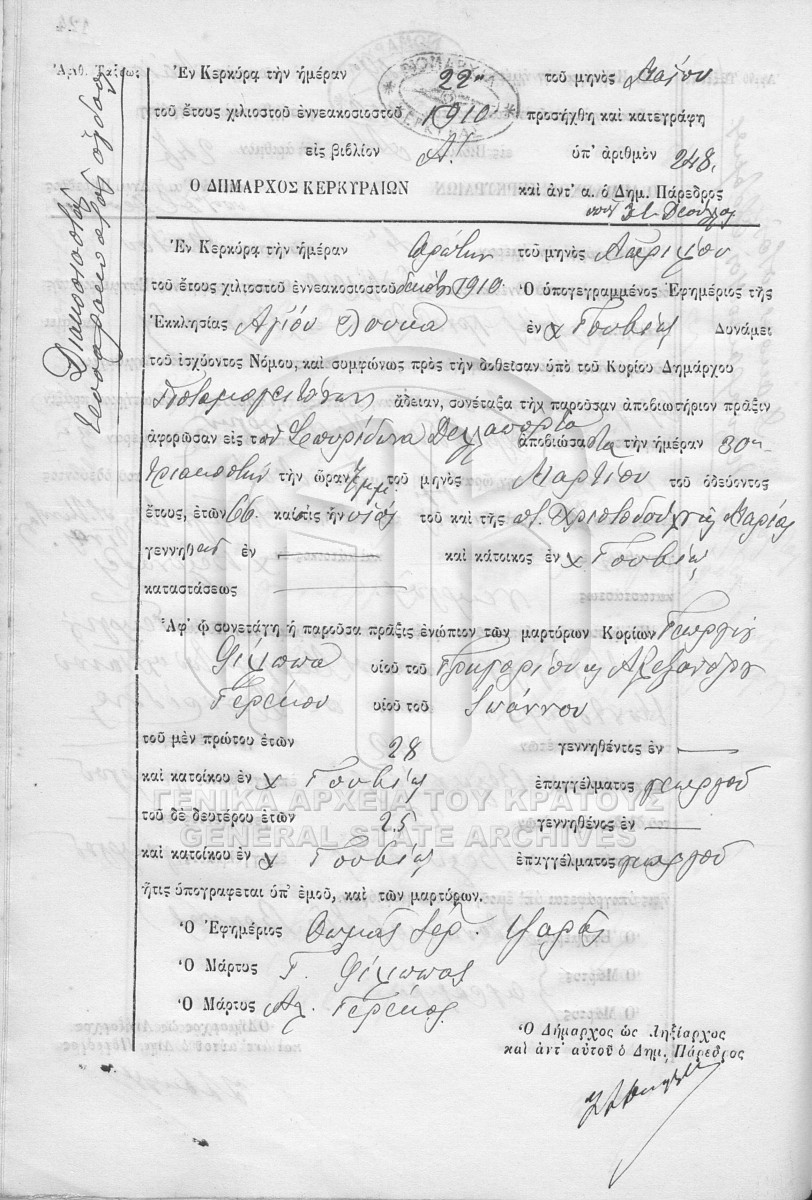 Ἀριθ. Τάξεως
Διακοσιοστὸς
τεσσαρακοστὸς ὄγδοος
ΝΟΜΑΡΧΙΑ
ΚΕΡΚΥΡΑΣ
Ἐν Κερκύρᾳ τὴν ἡμέραν 22αν τοῦ μηνὸς Μαΐου
τοῦ ἔτους χιλιοστοῦ ἐννεακοσιοστοῦ 1910 προσήχθη καὶ κατεγράφη
εἰς βιβλίον Α. ὑπ' ἀριθμὸν 248.
Ο ΔΗΜΑΡΧΟΣ ΚΕΡΚΥΡΑΙΩΝ καὶ ἀντ' α. ὁ Δημ. Πάρεδρος
Ἐν Κερκύρᾳ τὴν ἡμέραν πρώτην τοῦ μηνὸς Ἀπριλίου
τοῦ ἔτους χιλιοστοῦ ἐννεακοσιοστοῦ δεκάτου 1910 Ὁ ὑπογεγραμμένος Ἐφημέριος τῆς
Ἐκκλησίας Ἁγίου Λουκᾶ ἐν χ Γουβιῶν Δυνάμει
τοῦ ἰσχύοντος Νόμου, καὶ συμφώνως πρὸς τὴν δοθεῖσαν ὑπὸ τοῦ Κυρίου Δημάρχου
Ποταμογειτόνων ἄδειαν, συνέταξα τὴν παροῦσαν ἀποβιωτήριον πρᾶξιν
ἀφορῶσαν εἰς τὸν Σπυρίδωνα Δελαπορτα ἀποβιώσαντα τὴν ἡμέραν 30ην
τριακοστὴν τὴν ὥραν 7 μ.μ. τοῦ μηνὸς Μαρτίου τοῦ ὁδεύοντος
ἔτους, ἐτῶν 66. καὶ ὅστις ἦν υἱὸς τοῦ καὶ τῆς π. Χριστοδούλου κ Μαρίας
γεννηθεὶς ἐν — καὶ κάτοικος ἐν χ Γουβιῶν
καταστάσεως —
Ἀφ' ᾧ συνετάγη ἡ παροῦσα πρᾶξις ἐνώπιον τῶν μαρτύρων Κυρίων Γεωργίου
Φίλιππα υἱοῦ τοῦ Γρηγορίου κ Ἀλεξάνδρου
Γερέκου υἱοῦ τοῦ Ἰωάννου
τοῦ μὲν πρώτου ἐτῶν 28 γεννηθέντος ἐν —
καὶ κατοίκου ἐν χ Γουβιῶν ἐπαγγέλματος γεωργοῦ
ΓΕΝΙΚΑ ΑΡΧΕΙΑ ΤΟΥ ΚΡΑΤΟΥΣ
τοῦ δὲ δευτέρου ἐτῶν 25 γεννηθένος ἐν —
GENERAL STATE ARCHIVES
καὶ κατοίκου ἐν χ Γουβιῶν ἐπαγγέλματος γεωργοῦ
ἥτις ὑπογράφεται ὑπ' ἐμοῦ, καὶ τῶν μαρτύρων.
Ὁ Ἐφημέριος Θωμᾶς Ἱερ. Ψαρᾶς
Ὁ Μάρτυς Γ. Φίλιππας
Ὁ Μάρτυς Αλ. Γερέκος
Ὁ Δήμαρχος ὡς Ληξίαρχος
καὶ ἀντ' αὐτοῦ ὁ Δημ. Πάρεδρος